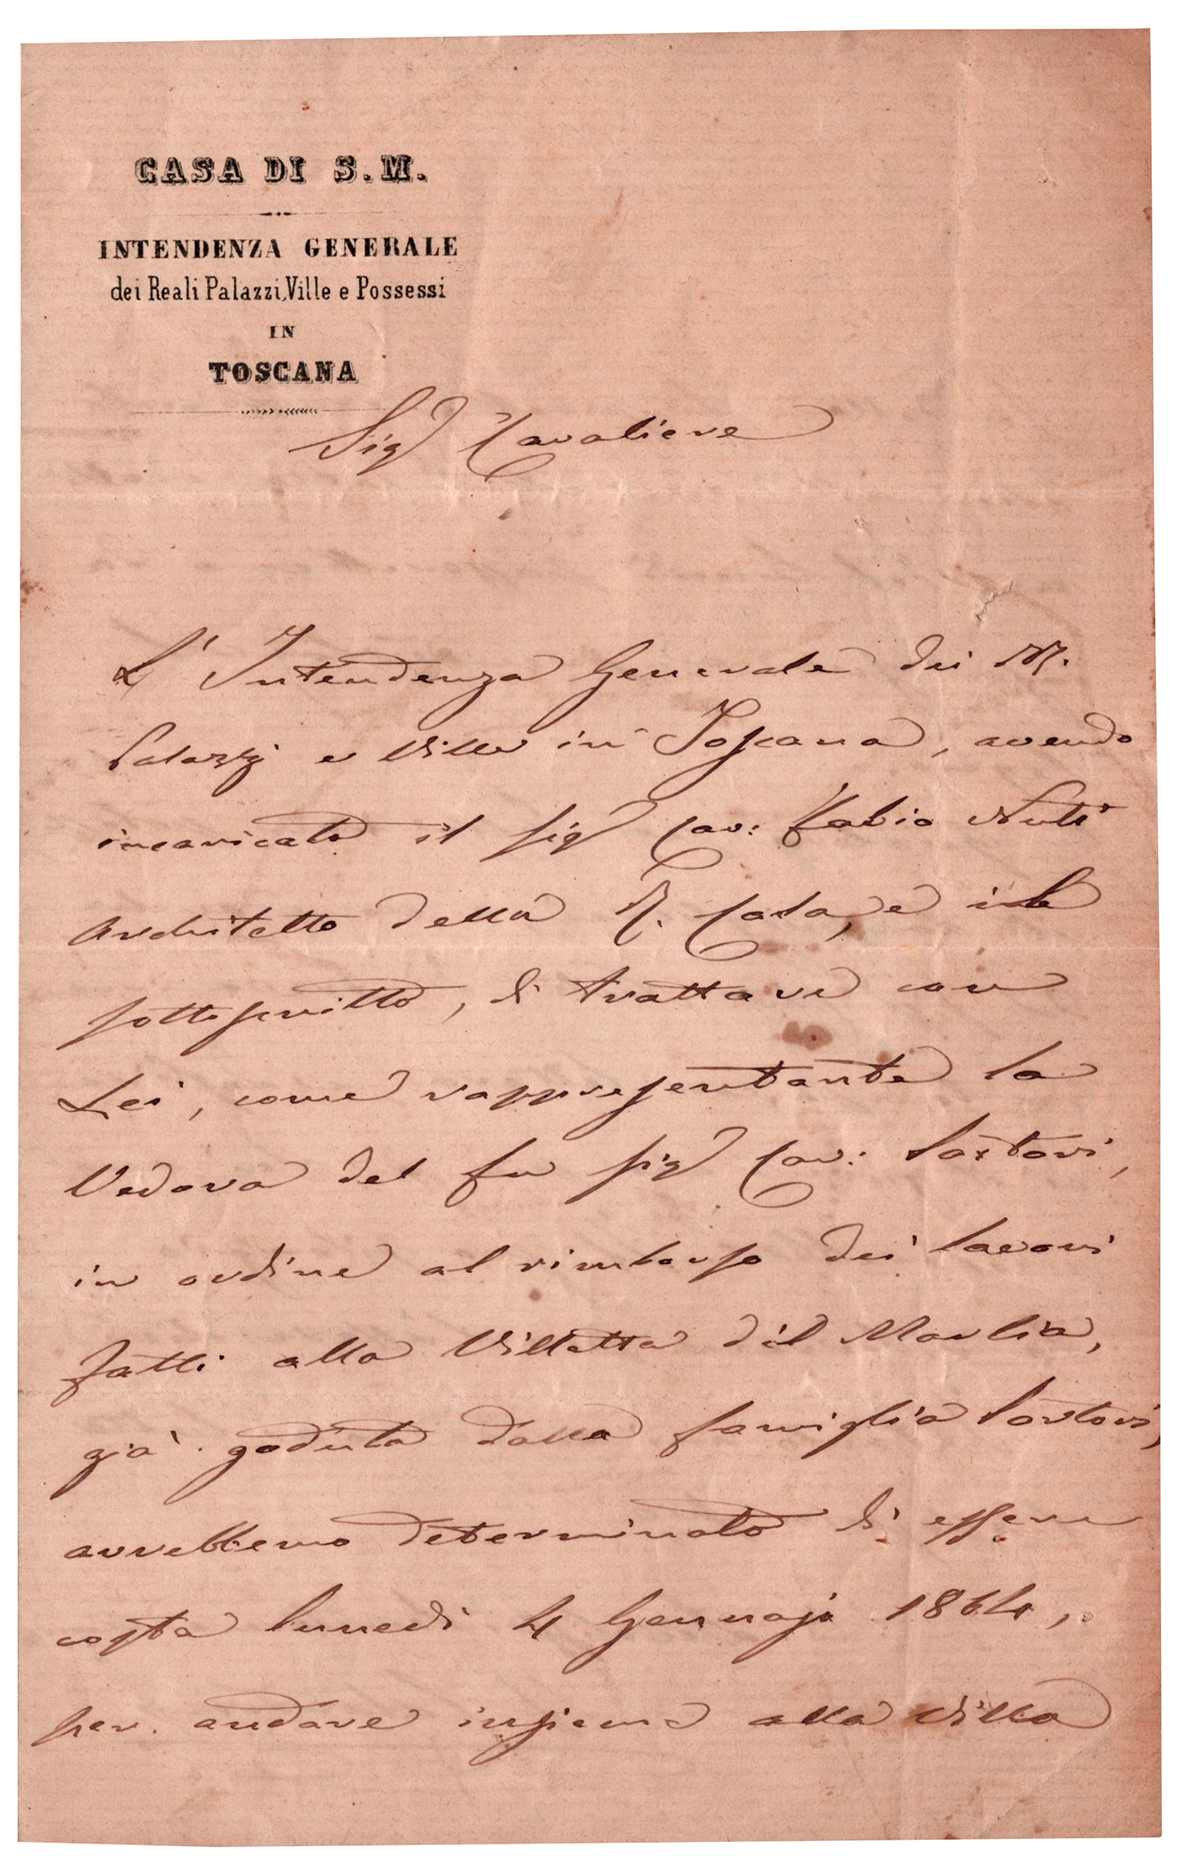 CASA DI S.M.
INTENDENZA GENERALE
dei Reali Palazzi, Ville e Possessi
IN
TOSCANA
Sig Cavaliere
L' Intendenza Generale dei RR.
Palazzi e Ville in Toscana, avendo
incaricato il sig Cav: Fabio Nuti
Architetto della R. Casa, e il
sottoscritto, di trattare con
Lei, come rappresentante la
Vedova del fu sig Cav: Sartori,
in ordine al rimborso dei lavori
fatti alla Villetta di Marlia,
già goduta dalla famiglia Sartori,
avrebbemo determinato di essere
costà lunedì 4 Gennajo 1864,
per andare insieme alla Villa